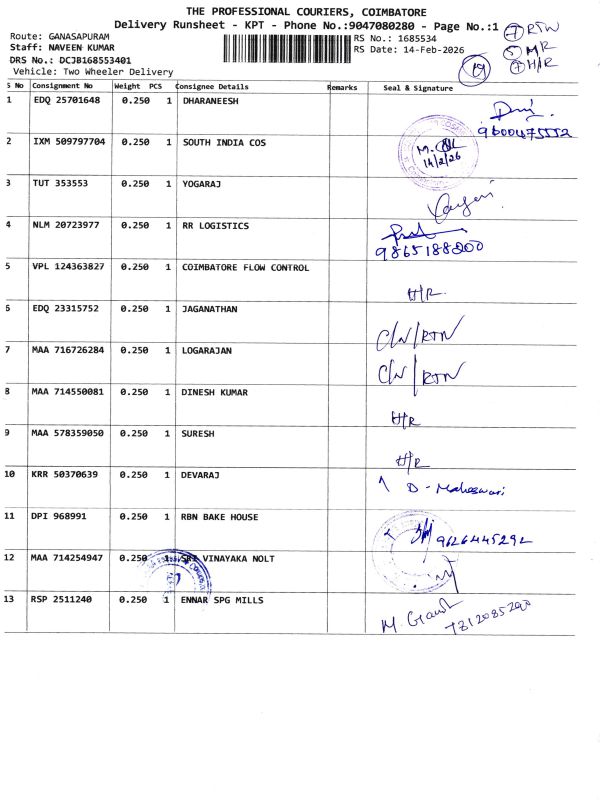 THE PROFESSIONAL COURIERS, COIMBATORE
Delivery Runsheet - KPT - Phone No.:9047080280 - Page No.:1
7 RTN
Route: GANASAPURAM RS No.: 1685534
5 MR
Staff: NAVEEN KUMAR RS Date: 14-Feb-2026
7 H/R
19
DRS No.: DCJB168553401
Vehicle: Two Wheeler Delivery
S No Consignment No Weight PCS Consignee Details Remarks Seal & Signature
1 EDQ 25701648 0.250 1 DHARANEESH
9600475552
2 IXM 509797704 0.250 1 SOUTH INDIA COS
14/2/26
3 TUT 353553 0.250 1 YOGARAJ
4 NLM 20723977 0.250 1 RR LOGISTICS
9865188800
5 VPL 124363827 0.250 1 COIMBATORE FLOW CONTROL
H/R
6 EDQ 23315752 0.250 1 JAGANATHAN
C/N/RTN
7 MAA 716726284 0.250 1 LOGARAJAN
C/N/RTN
8 MAA 714550081 0.250 1 DINESH KUMAR
H/R
9 MAA 578359050 0.250 1 SURESH
H/R
10 KRR 50370639 0.250 1 DEVARAJ
D - Maheswari
11 DPI 968991 0.250 1 RBN BAKE HOUSE
12 MAA 714254947 0.250 1 SRI VINAYAKA NOLT
13 RSP 2511240 0.250 1 ENNAR SPG MILLS
7812085290